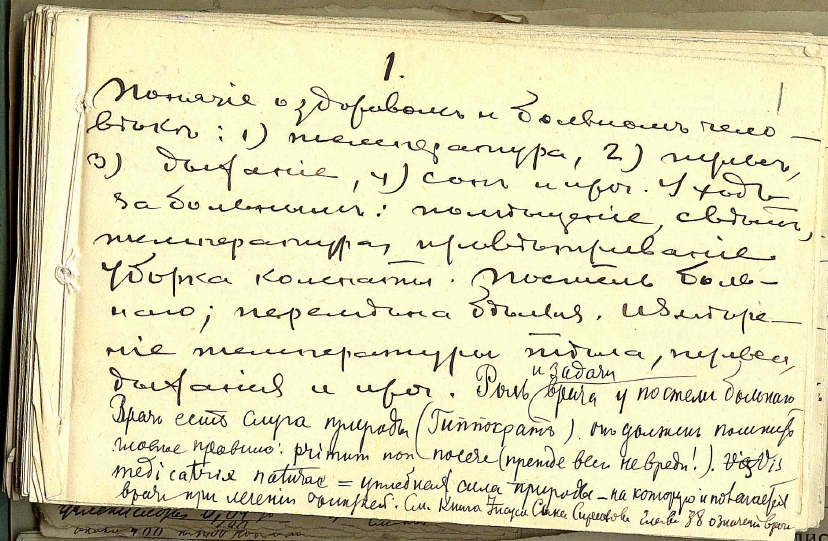 1.
Понятіе о здоровомъ и больномъ чело-
вѣкѣ: 1) температура, 2) пульсъ,
3) дыханіе, 4) сонъ и проч. Уходъ
за больнымъ: помѣщеніе, свѣтъ,
температура, провѣтриваніе
уборка комнаты. Постель боль-
наго; перемѣна бѣлья. Измѣре-
ніе температуры тѣла, пульса,
дыханія и проч. Роль и задачи врача у постели больнаго
Врачъ есть слуга природы (Гиппократъ). онъ долженъ помнить
главное правило: primum non nocere (прежде всего не вреди!). Vis
medicatrix naturae = цѣлебная сила природы – на которую и полагается
врачъ при леченіи болѣзней. См. Книга Іисуса Сына Сирахова глава 38 о значеніи врача